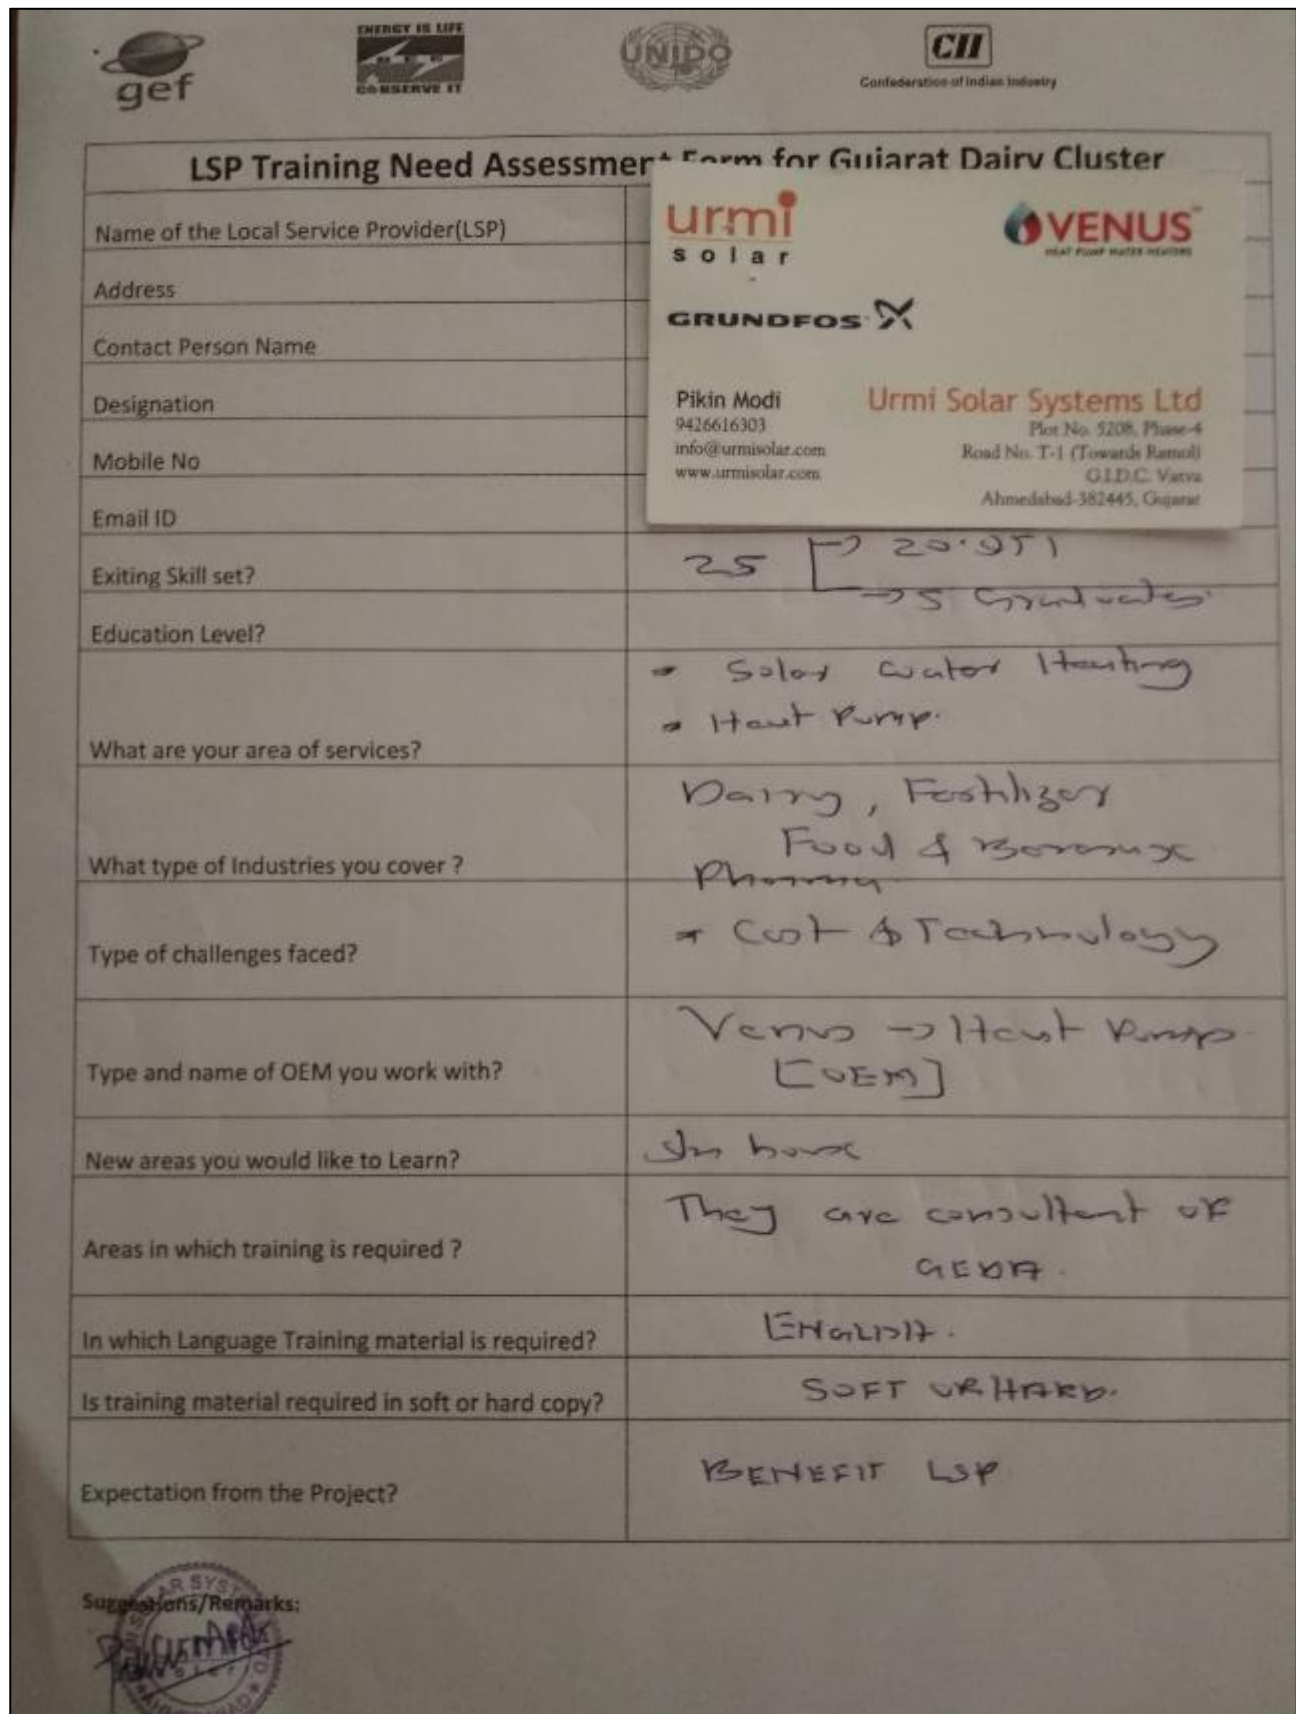 gef
ENERGY IS LIFE
CONSERVE IT
UNIDO
CII
Confederation of Indian Industry
LSP Training Need Assessment Form for Gujarat Dairy Cluster
urmi
solar
VENUS
HEAT PUMP WATER HEATERS
GRUNDFOS
Pikin Modi
9426616303
info@urmisolar.com
www.urmisolar.com
Urmi Solar Systems Ltd
Plot No. 5208, Phase-4
Road No. T-1 (Towards Ramol)
G.I.D.C. Vatva
Ahmedabad-382445, Gujarat
Name of the Local Service Provider(LSP)
Address
Contact Person Name
Designation
Mobile No
Email ID
Exiting Skill set? 25 → 20
→ 5 Graduates
Education Level?
• Solar Water Heating
• Heat Pump.
What are your area of services?
Dairy, Fertilizer
Food &
What type of Industries you cover ?
Pharma
Type of challenges faced? * Cost & Technology
Venus → Heat Pump
[OEM]
Type and name of OEM you work with?
New areas you would like to Learn? In house
They are consultent of
GEDA.
Areas in which training is required ?
In which Language Training material is required? ENGLISH.
Is training material required in soft or hard copy? SOFT OR HARD.
Expectation from the Project? BENEFIT LSP
Suggestions/Remarks: